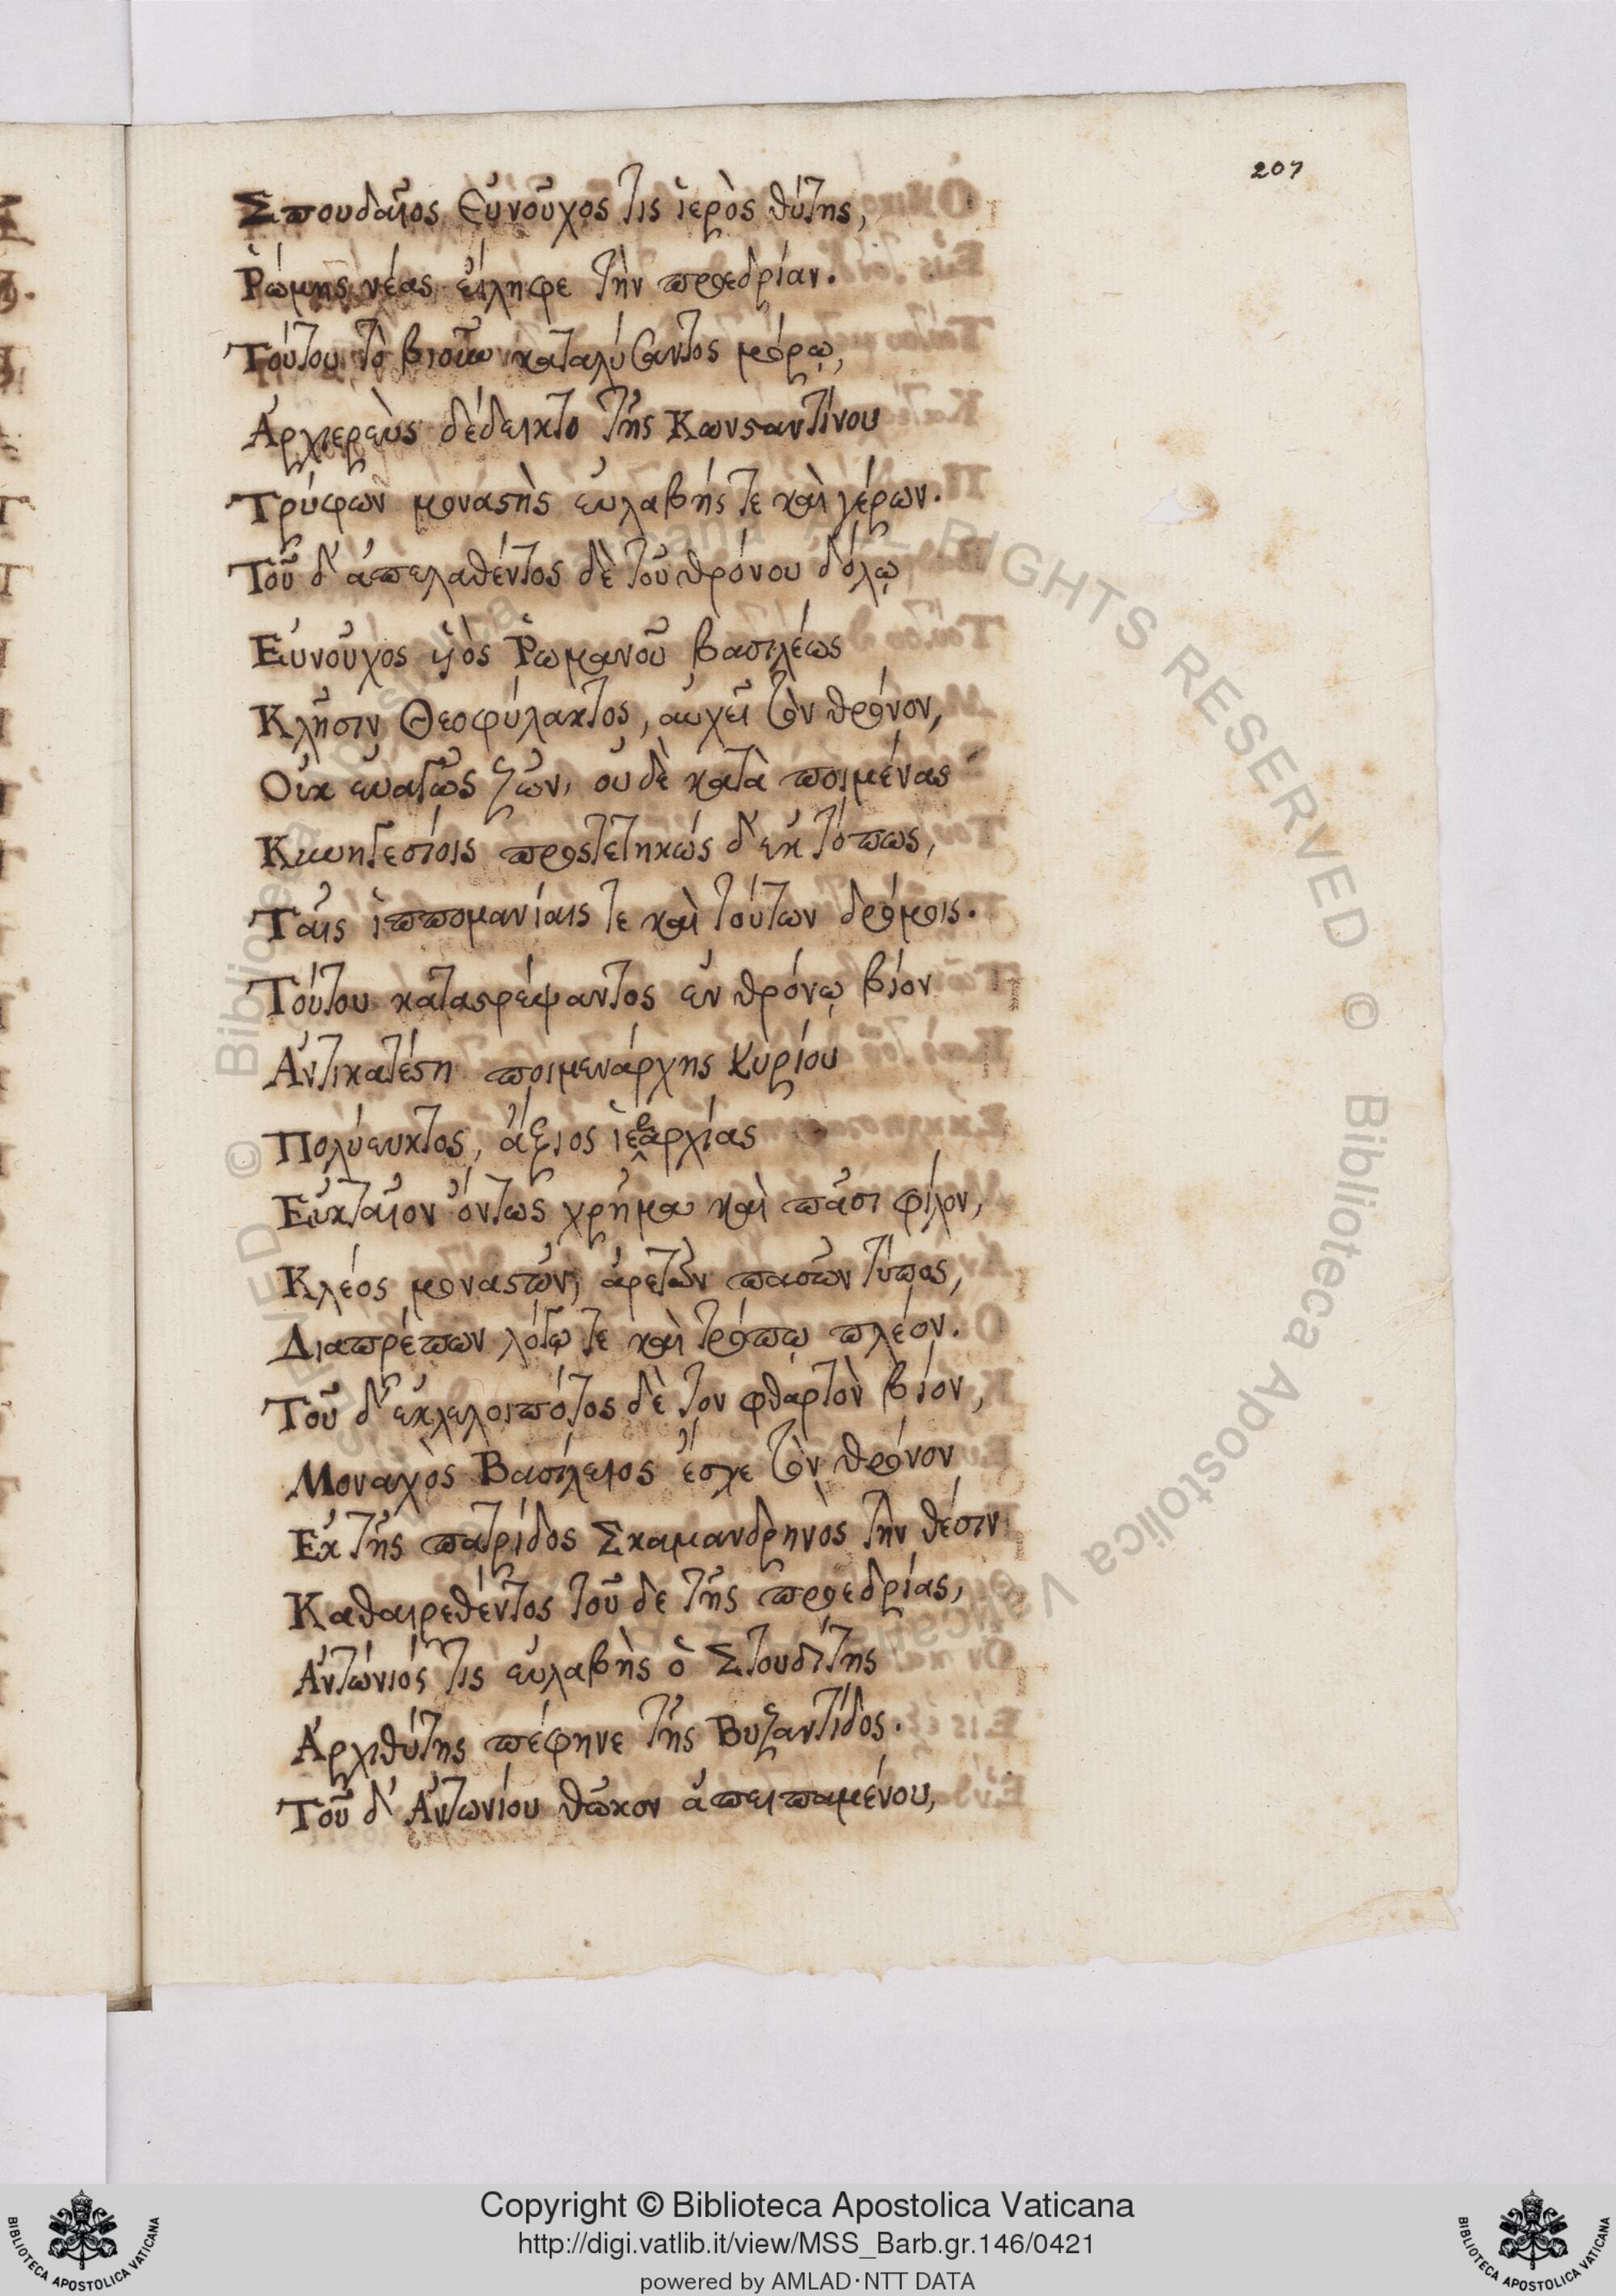 207
Σπουδαῖος Εὐνοῦχος τὶς ἱερὸς θύτης,
Ῥώμης νέας εἴληφε τὴν προεδρίαν.
Τούτου τὸ βιοῦν καταλύσαντος μόρῳ,
Ἀρχιερεὺς δέδεικτο τῆς Κωνσαντίνου
Τρύφων μοναστὴς εὐλαβής τε καὶ γέρων.
Τοῦ δ' ἀπελαθέντος δὲ τοῦ θρόνου δόλῳ
Εὐνοῦχος ὑιὸς Ῥωμανοῦ βασιλέως
Κλῆσιν Θεοφύλακτος, αὐχεῖ τὸν θρόνον,
Οὐκ εὐαγῶς ζῶν, οὐδὲ κατὰ ποιμένας
Κυνηγεσίοις προστετηκώς δ' ἐκτόπως,
Ταῖς ἱππομανίαις τε καὶ τούτων δρόμοις.
Τούτου καταστρέψαντος ἐν θρόνῳ βίον
Ἀντικατέστη ποιμενάρχης Κυρίου
Πολύευκτος, ἄξιος ἱεραρχίας
Εὐκταῖον ὄντως χρῆμα καὶ πᾶσι φίλον,
Κλέος μοναστῶν, ἀρετῶν πασῶν τύπος,
Διαπρέπων λόγῳ τε καὶ τρόπῳ πλέον.
Τοῦ δ' ἐκλελοιπότος δὲ τον φθαρτὸν βίον,
Μοναχὸς Βασίλειος ἔσχε τὸν θρόνον
Ἐκ τῆς πατρίδος Σκαμανδρηνὸς τὴν θέσιν
Καθαιρεθέντος τοῦ δε τῆς προεδρίας,
Ἀντώνιός τις εὐλαβὴς ὁ Στουδίτης
Ἀρχιθύτης πέφηνε τῆς Βυζαντίδος.
Τοῦ δ' Ἀντωνίου θῶκον ἀπειπαμένου,
Copyright © Biblioteca Apostolica Vaticana
http://digi.vatlib.it/view/MSS_Barb.gr.146/0421
powered by AMLAD·NTT DATA
BIBLIOTECA APOSTOLICA VATICANA
BIBLIOTECA APOSTOLICA VATICANA